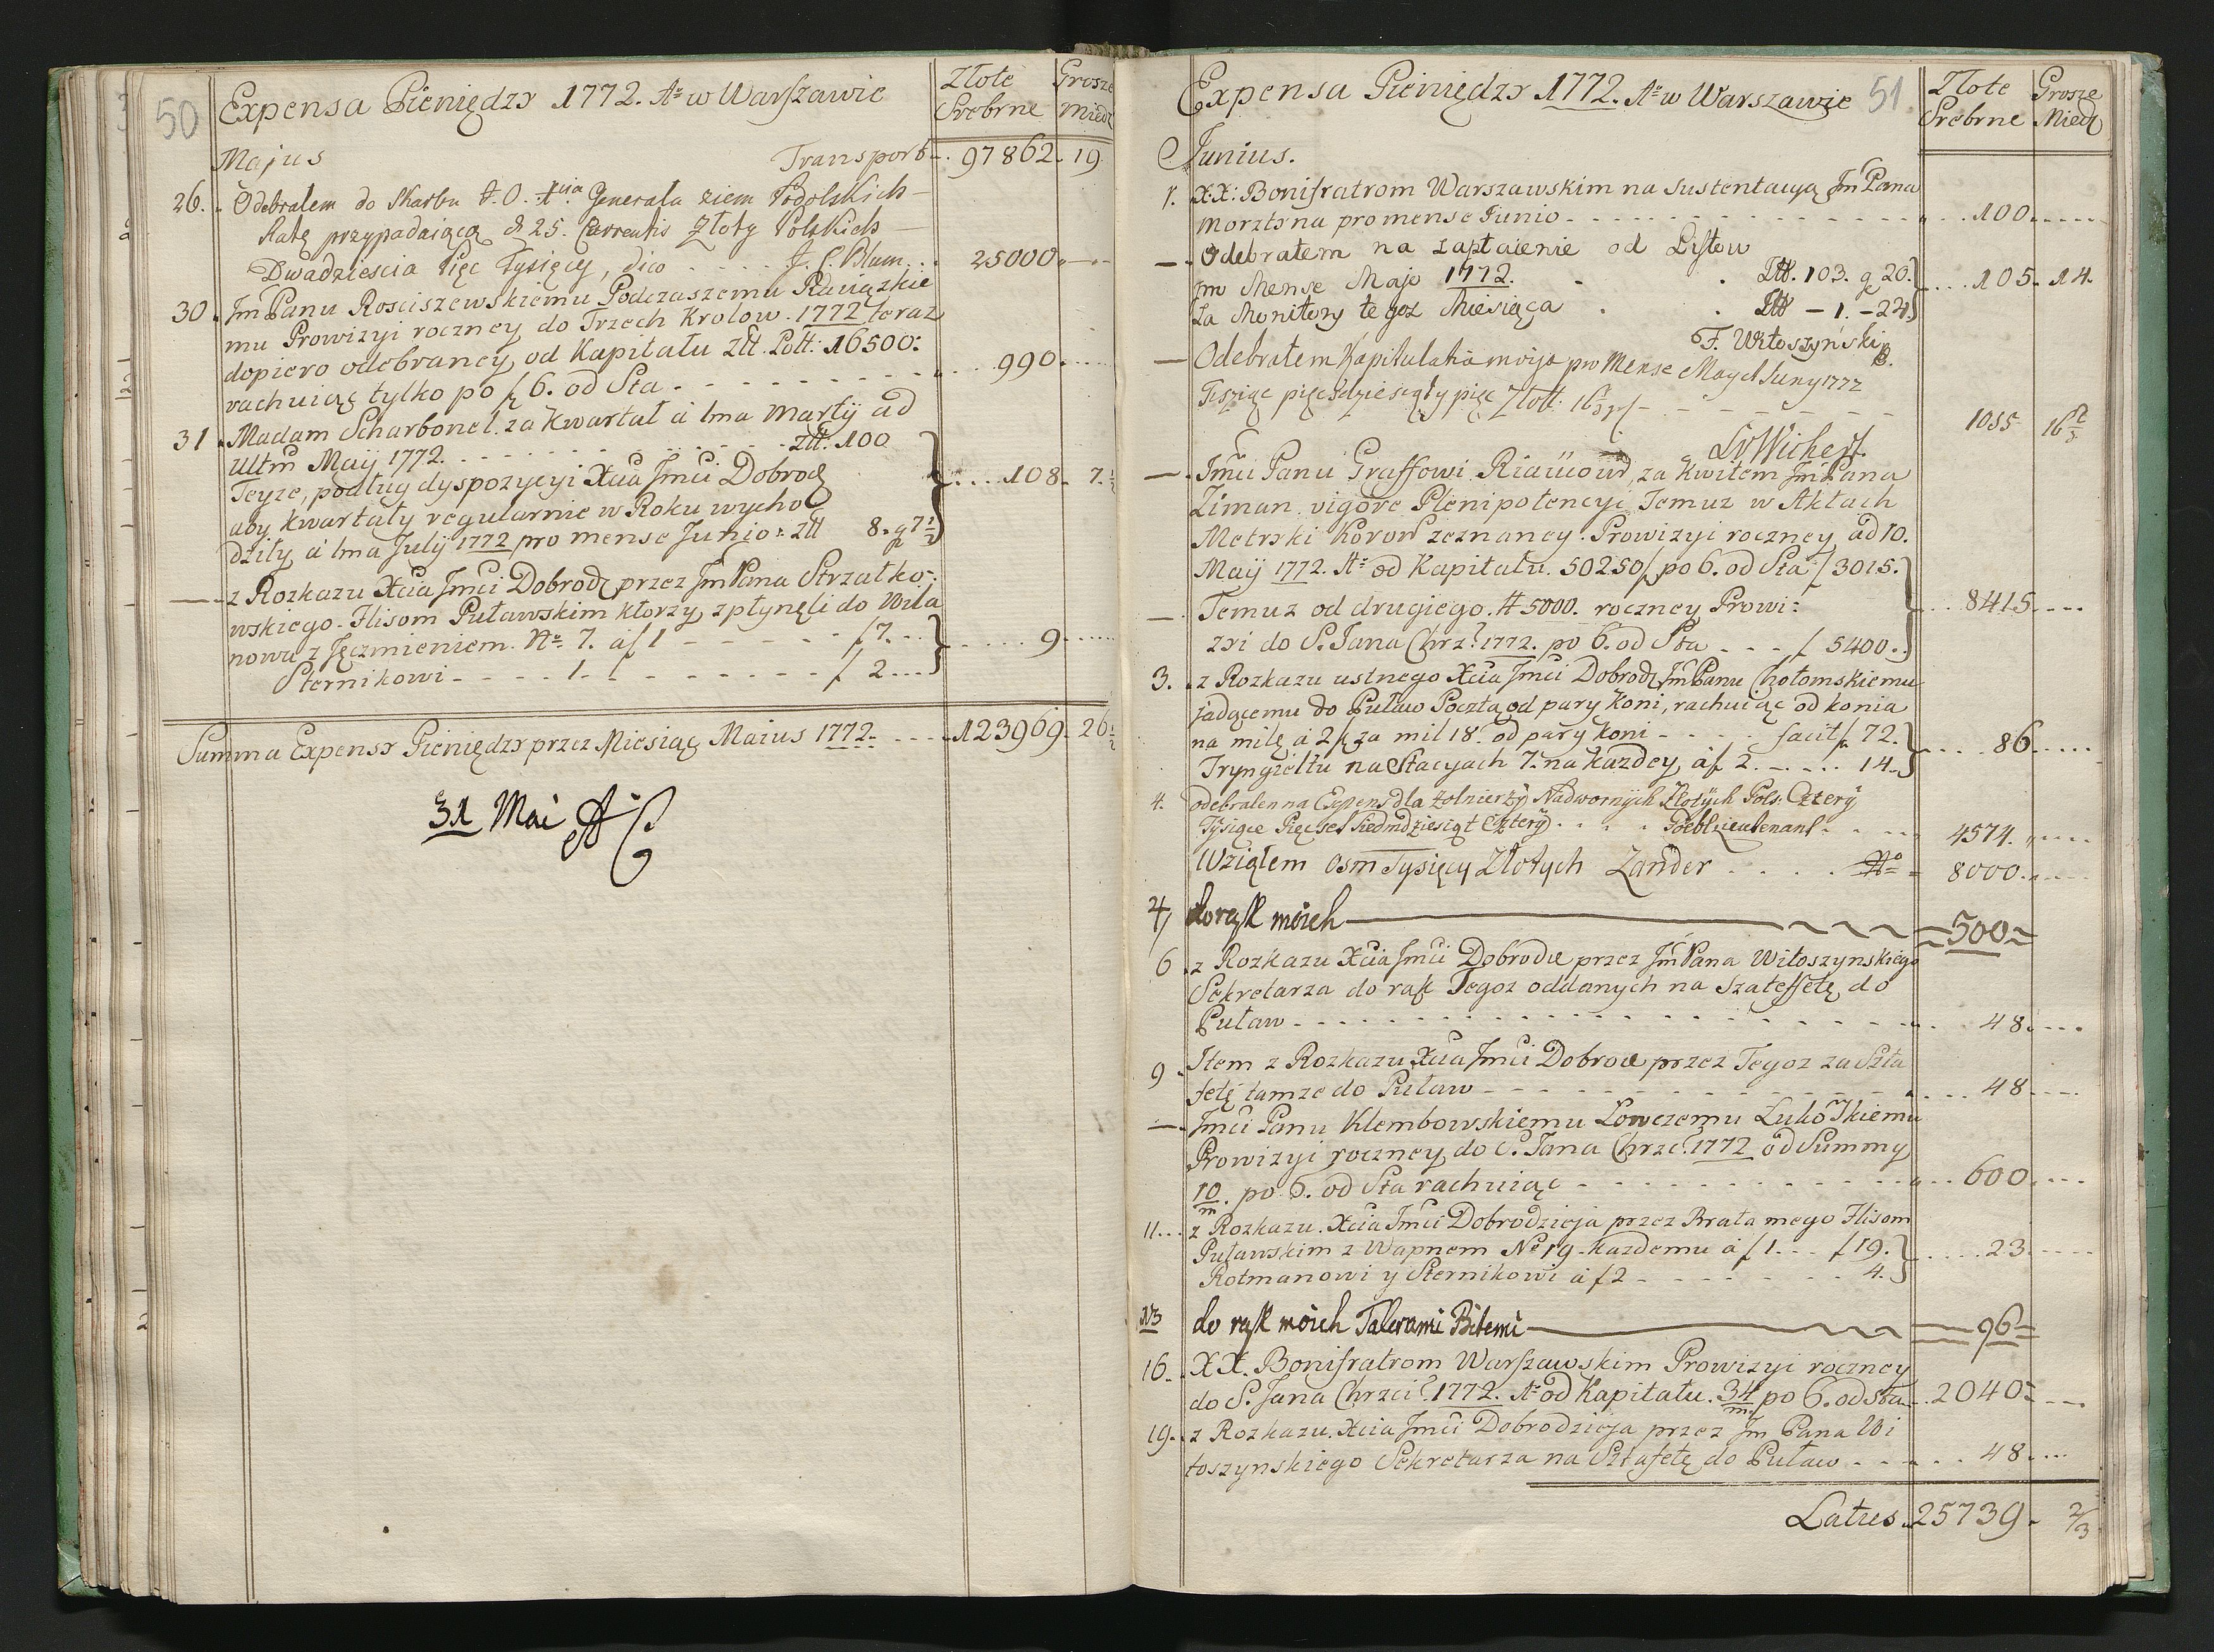 50
Expensa Pieniędzy 1772. Aº w Warszawie
Złote Grosze
Srebrne Miedz
Majus Transport. 97862. 19
26. Odebrałem do Skarbu J. O. Xcia Generała ziem Podolskich
Ratę przypadaiącą d 25. Currentis Złoty Polskich
Dwadziescia Pięc Tysięcy, dico . . . . J. C. Blum. . . 25000
30. Jm Panu Rosciszewskiemu Podczaszemu Rawązkie
mu Prowizyi roczney do Trzech Krolow. 1772 teraz
dopiero odebraney, od Kapitału Złt. Poll: 16500:
rachuiąc tylko po f 6. od Sta . . . . 990
31. Madam Scharbonel. za Kwartał á 1ma Martÿ ad
Ultm Maÿ 1772. . . . . Złt. 100
Teyze, podług dyspozycyi Xcia Jmci Dobrodz
aby kwartały regularnie w Roku wycho
dziły, á 1ma Julÿ 1772 pro mense Junio: Złt 8. g 7½ . . . 108. 7.½
— z Rozkazu Xcia Jmci Dobrodz przez Jm Pana Strzałko-
wskiego. Flisom Puławskim ktorzy zpłynęli do Wila
nowa z Jęczmieniem. Nº 7. á f 1 - - - f 7. . . . 9
Sternikowi - - - 1. - - - f 2 . . .
Summa Expensy Pieniędzy przez Miesiąc Maius 1772. . . . 123969. 26½
31 Mai AC
Expensa Pieniędzy 1772. Aº w Warszawie 51
Złote Grosze
Srebrne Miedz
Junius.
1. XX: Bonifratrom Warszawskim na sustentacyą Jm Pana
Morztyna pro mense Junio . . . . 100
—. Odebrałem na zapłacenie od Listow
pro Mense Majo 1772. Złt. 103. g 20. . . . 105. 14.
za Monitory tegoz Miesiąca Złt - 1. - 24.
F. Witoszyński
— Odebrałem Kapitulatia moija pro Mense May et Juny 1772
Tysziąc pięcdziesiąty pięc Złott: 16 gr - - - 1055 16 ⅔
LvWichert.
—. Jmci Panu Graffowi Riaucour, za Kwitem Jm Pana
Ziman. vigore Plenipotencyi Temuz w Aktach
Metrzki Koron zeznaney. Prowizyi roczney ad 10.
Maÿ 1772. Aº od Kapitału. 50250 f po 6. od Sta f 3015.
—. Temuz od drugiego # 5000. roczney Prowi: . . . 8415
zyi do S. Jana Chrz: 1772. po 6. od Sta - - - f 5400.
3. z Rozkazu ustnego Xcia Jmci Dobrodz Jm Panu Chołomskiemu
jadącemu do Puław Pocztą od pary Koni, rachuiąc od konia
na milę á 2 f za mil 18. od pary koni - - - facit f 72. . . . 86
Tryngieltu na Stacyach 7. na kazdey á f 2. . . . 14.
4. odebralem na Expens dla Zołnierzÿ Nadwornÿch Złotÿch Pols: Czterÿ
Tÿsiące Piecset siedmdziesiąt Czterÿ. . . . Poeblieutenant . . . 4574.
Wziąłem Osm Tysięcy Złotych Zander . . . . 8000
4, do rąk moich 500
6. z Rozkazu Xcia Jmci Dobrodz przez Jm Pana Witoszynskiego
Sekretarza do rąk Tegoz oddanych na Szatffetę do
Puław . . . . 48
9. Item z Rozkazu Xcia Jmci Dobrodz przez Tegoz za Szta
fetę tamze do Puław . . . . 48
—. Jmci Panu Klembowskiemu Łowczemu Łukowskiemu
Prowizyi roczney do S. Jana Chrzc: 1772 od Summy
10/m. po 6. od Sta rachuiąc . . . . 600
11. . . z Rozkazu. Xcia Jmci Dobrodzieja przez Brata mego Flisom
Puławskim z Wapnem Nº 19 - kazdemu á f 1 - - - f 19. . . . 23
Rotmanowi y Sternikowi á f 2 - - - 4.
13 do rąk moich Talerami Bitemi 96
16. XX. Bonifratrom Warszawskim Prowizyi roczney
do S. Jana Chrzci: 1772. Aº od Kapitału. 34/m po 6. od sta . . 2040
19. z Rozkazu. Xcia Jmci Dobrodzieja przez Jm Pana Wi
toszynskiego Sekretarza na Sztafetę do Puław . . . 48
Latus. 25739. ⅔